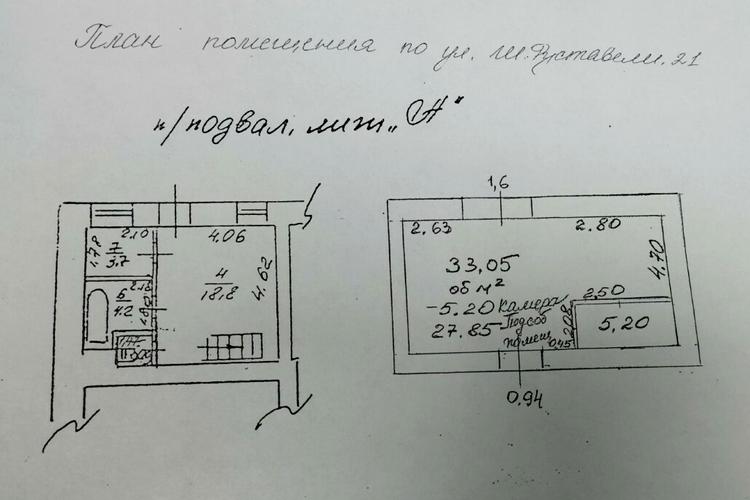 План помещения по ул. Ш.Руставели.21
п/подвал, лит „Н“
2.10
4.06
1.78
7
3.7
4
18,8
4.62
2.18
6
4.2
1,6
2.63
2.80
33,05
об м²
4.70
-5.20 камера
2,50
27.85 - Подсоб
помещ
2.08
5,20
0,45
0.94